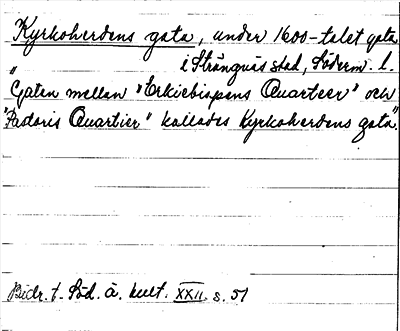 Kyrkoherdens gata, under 1600-talet gata
i Strängnäs stad, Söderm. l.
"Gatan mellan "Erkiebispens Quarteer" och
"Pastoris Quartier" kallades Kyrkoherdens gata".
Bidr. t. Söd. ä. kult. XXII. s. 51